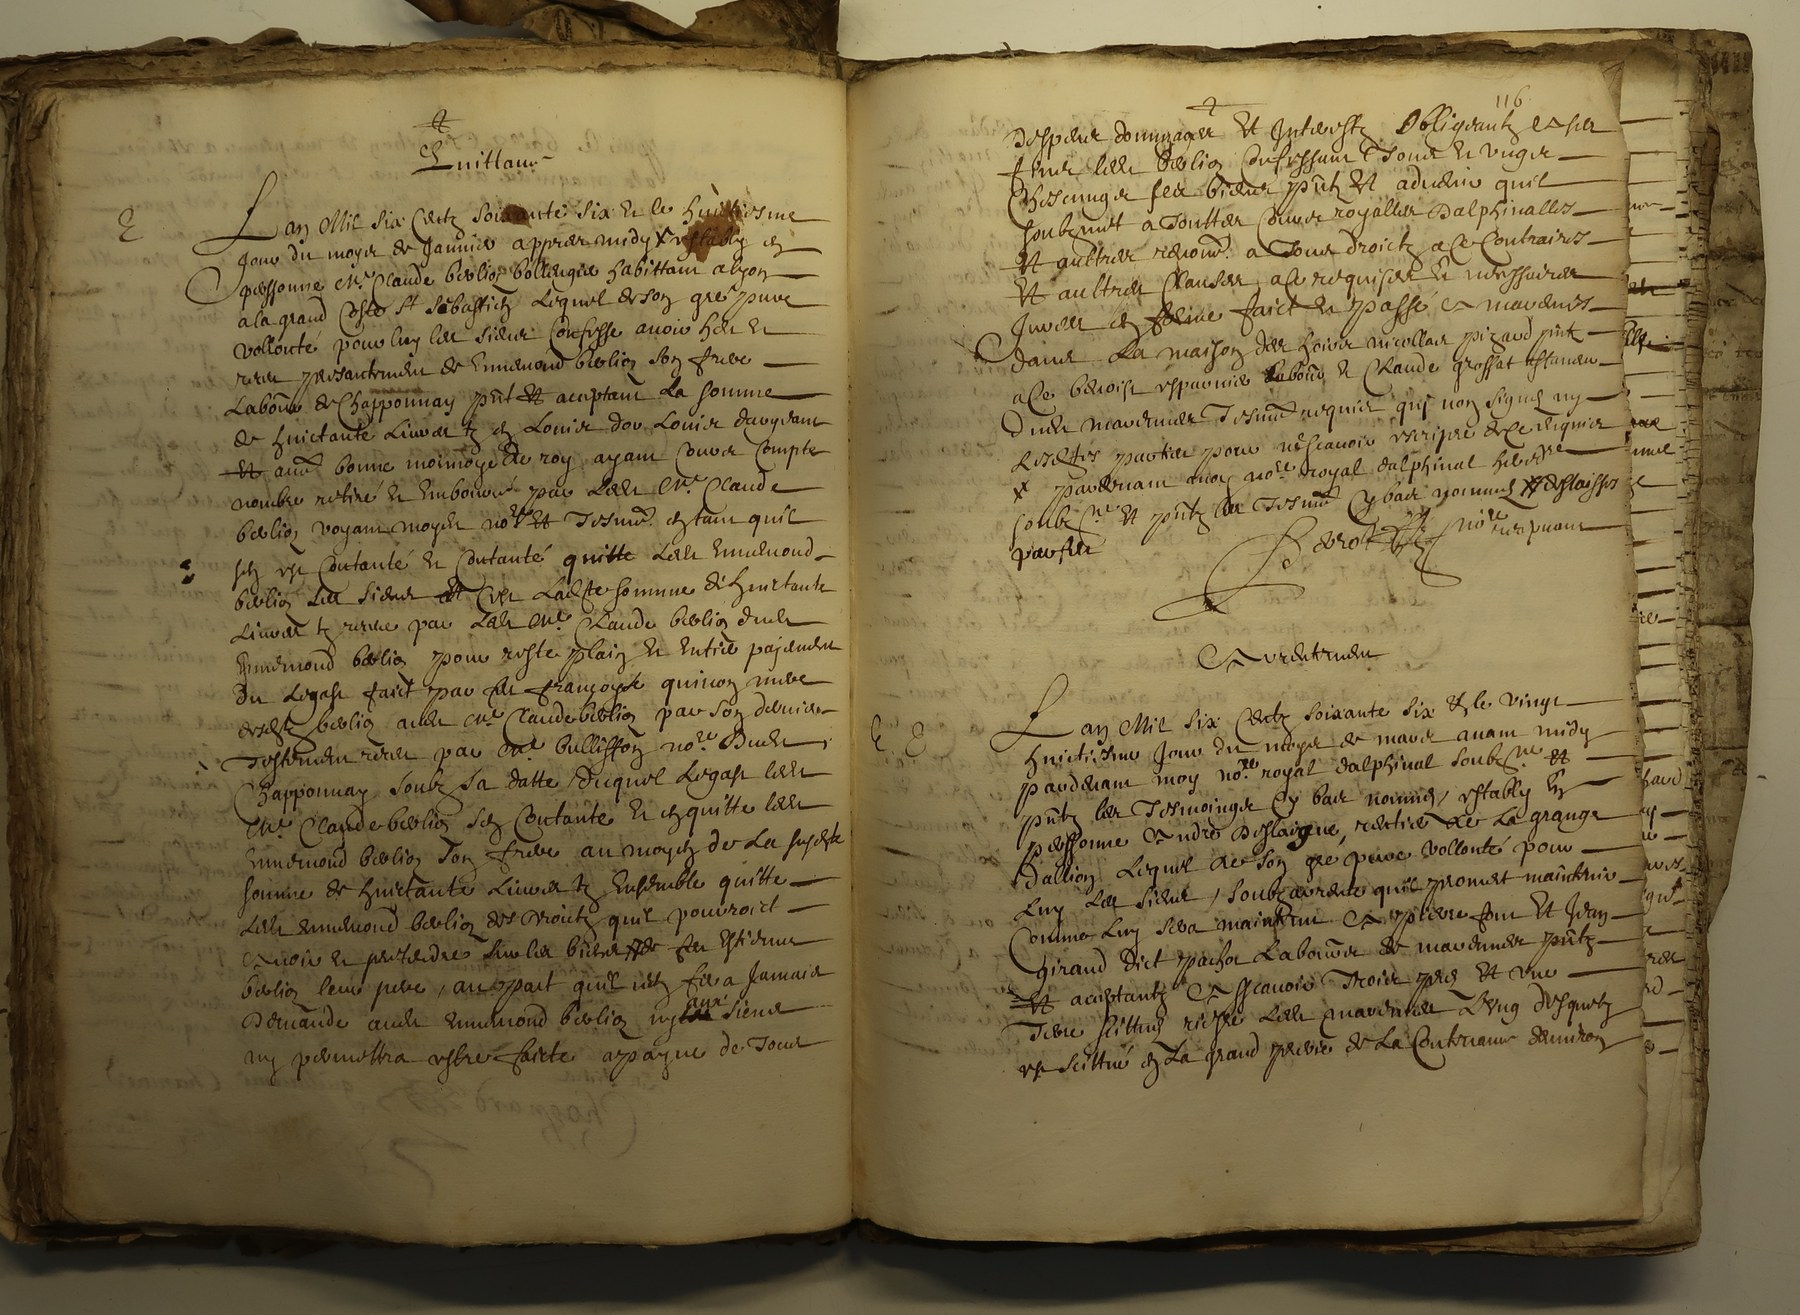 Quittance
Lan Mil Six Centz Soixante Six Et le huictiesme
Jour du moys de Janvier appres midy x estably en
personne Me Claude berlioz bollengier habittant a lyon
a la grand Coste St Sebastien Lequel de son gré pure
vollonté pour luy les siens Confesse avoir heu et
receu presantement de Ennemond berlioz son frere
Laboure de Chapponnay pnt et acceptant La somme
de huictante Livres tz en Louis dor Louis dargeant
et aure bonne monnoye de roy ayant cours compté
nombré retiré et Emboursé par Ledt Me Claude
berlioz voyant moyd nore et Tesmz en tant quil
sen est Contanté et Contante quitte Ledt Ennemond
berlioz les siens et Ce Ladte somme de huictante
Livres tz receue par Ledt Me Claude berlioz dudt
Ennemond berlioz pour reste plain et Entier payement
du Legast faict par fue Françoyse quinon mere
desdtz berlioz audt Me Claude berlioz par son dernier
Testement receu par Me bullisson nore dudt
Chapponnay soubz sa datte Ducquel Legast ledt
Me Claude berlioz sen Contante et en quitte ledt
Ennemond berlioz son frere au moyen de La susdte
somme de huictante Livres tz Ensemble quitte
Ledt Ennemond berlioz des droictz quil pourroict
avoir et prethendre sur les biens de feu Estienne
berlioz leur pere, au part quil nen fera Jamais
Demande audt Ennemond berlioz ny aux siens
ny permettra estre faicte a payne de Tous
116
Despens dommages Et Interestz Obligeantz a ses
fins ledt berlioz Confessant Tous et ungs
Chescungs ses biens pntz Et advenir quil
soubzmit a Touttes Cours royalles Dalphinalles
Et aultres renont a Tous droictz a Ce Contraires
Et aultres Clauses a Ce requises et necessaires
Jurées en forme faict et passé a marennes
dans La maison des hoirs nicollas pizard pntz
a Ce benoist esparnier Labour et Claude grossat Estamen
dudt marennes Tesmz requis quy non signés ny
Lesdtes parties pour ne scavoir escripre de Ce requis
x pardevant moy nore royal dalphinal hereditre
soubzne et pntz les Tesmz Cy bas nommés x deslaisses
parsue
Berot nore recepvant
Arrentement
Lan Mil Six Centz soixante Six Et le vingt
huictiesme Jour du moys de mars avant midy
pardevant moy nore royal dalphinal soubzne et
pntz les Tesmoings Cy bas nommés, estably En
personne André Deslaigue, rentier de La grange
Dallion Lequel de son gré pure vollonté pour
Luy Les siens, soubzarrente quil promet maintenir
Comme Luy sera maintenu A pierre font Et Jean
girand dict pacho Laboures de marennes pntz
et aceptantz A scavoir Trois pies Et une
Terre scittués riere Ledt marennes Lung desquelz
est scittué en La grand prerie de La Contenance denviron